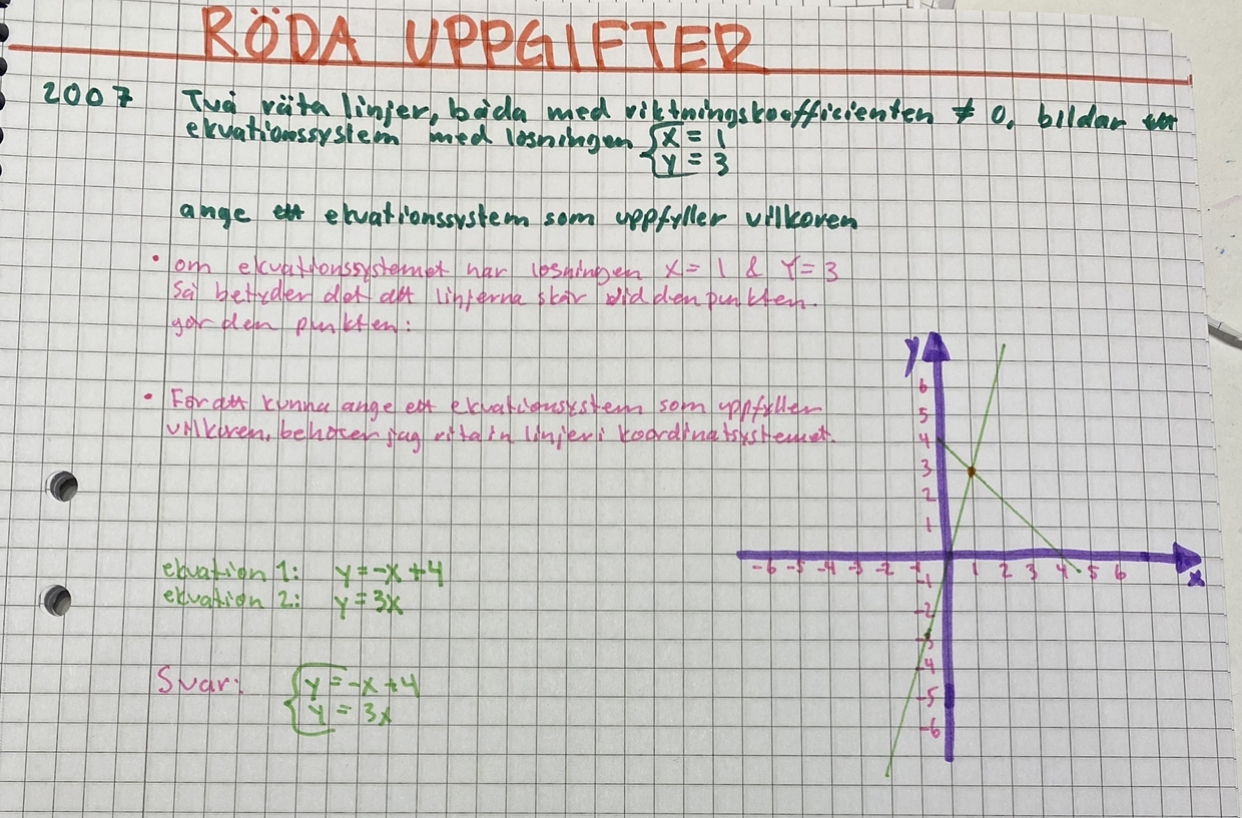 RÖDA UPPGIFTER
2007 Två räta linjer, båda med riktningskoefficienten ≠ 0, bildar ett
ekvationssystem med lösningen { x = 1
y = 3
ange ett ekvationssystem som uppfyller villkoren
• om ekvationssystemet har lösningen x = 1 & y = 3
Så betyder det att linjerna skär vid den punkten.
gör den punkten:
• För att kunna ange ett ekvationsystem som uppfyller
villkoren, behöver jag rita in linjer i koordinatsystemet.
y
6
5
4
3
2
1
-6 -5 -4 -3 -2 -1 1 2 3 4 5 6
x
-1
-2
-3
-4
-5
-6
ekvation 1: y = -x + 4
ekvation 2: y = 3x
Svar: { y = -x + 4
y = 3x